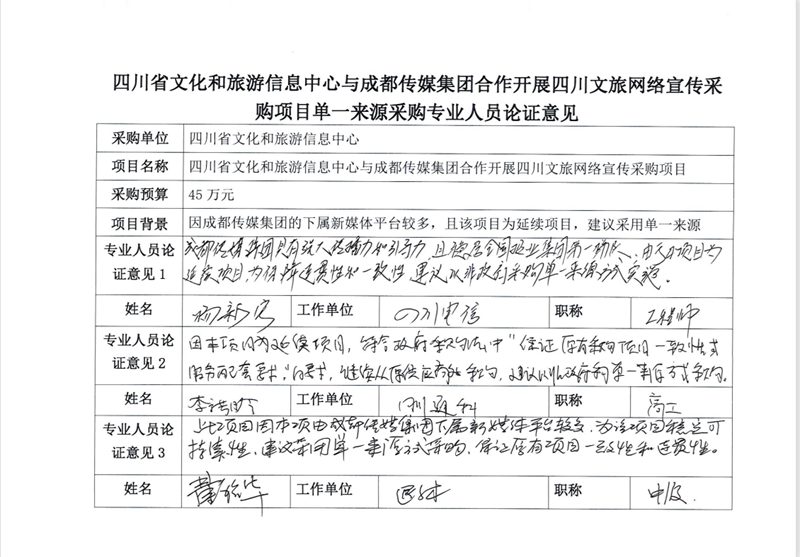 四川省文化和旅游信息中心与成都传媒集团合作开展四川文旅网络宣传采
购项目单一来源采购专业人员论证意见
采购单位 四川省文化和旅游信息中心
项目名称 四川省文化和旅游信息中心与成都传媒集团合作开展四川文旅网络宣传采购项目
采购预算 45 万元
项目背景 因成都传媒集团的下属新媒体平台较多，且该项目为延续项目，建议采用单一来源
专业人员论 成都传媒集团具有强大传播力和引导力，且稳居全国报业集团第一梯队，由于本项目为
证意见 1 延续项目，为保障连贯性和一致性，建议以非政府采购单一来源方式实施。
姓名 杨新 工作单位 四川电信 职称 工程师
专业人员论 因本项目为延续项目，符合政府采购法中“保证原有采购项目一致性或
证意见 2 服务配套要求，”的要求，继续从原供应商处采购，建议以政府采购单一来源方式采购。
姓名 李 工作单位 职称 高工
专业人员论 此项目因本项由成都传媒集团下属新媒体平台较多，为该项目稳定可
证意见 3 持续性，建议采用单一来源方式采购，保证原有项目一致性和连贯性。
姓名 工作单位 职称 中级